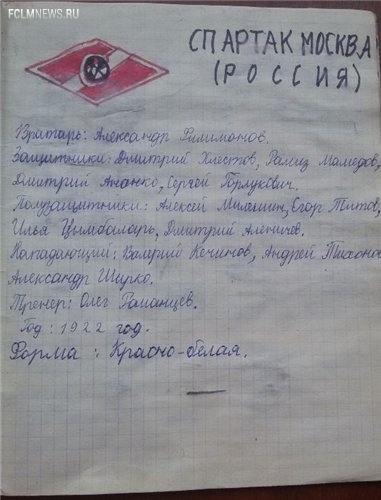 FCLMNEWS.RU
СПАРТАК МОСКВА
(РОССИЯ)
Вратарь: Александр Филимонов.
Защитники: Дмитрий Хлестов, Рамиз Мамедов,
Дмитрий Ананко, Сергей Горлукович.
Полузащитники: Алексей Мелешин, Егор Титов,
Илья Цымбаларь, Дмитрий Аленичев.
Нападающий: Валерий Кечинов, Андрей Тихонов
Александр Ширко.
Тренер: Олег Романцев.
Год: 1922 год.
Форма: Красно-белая.